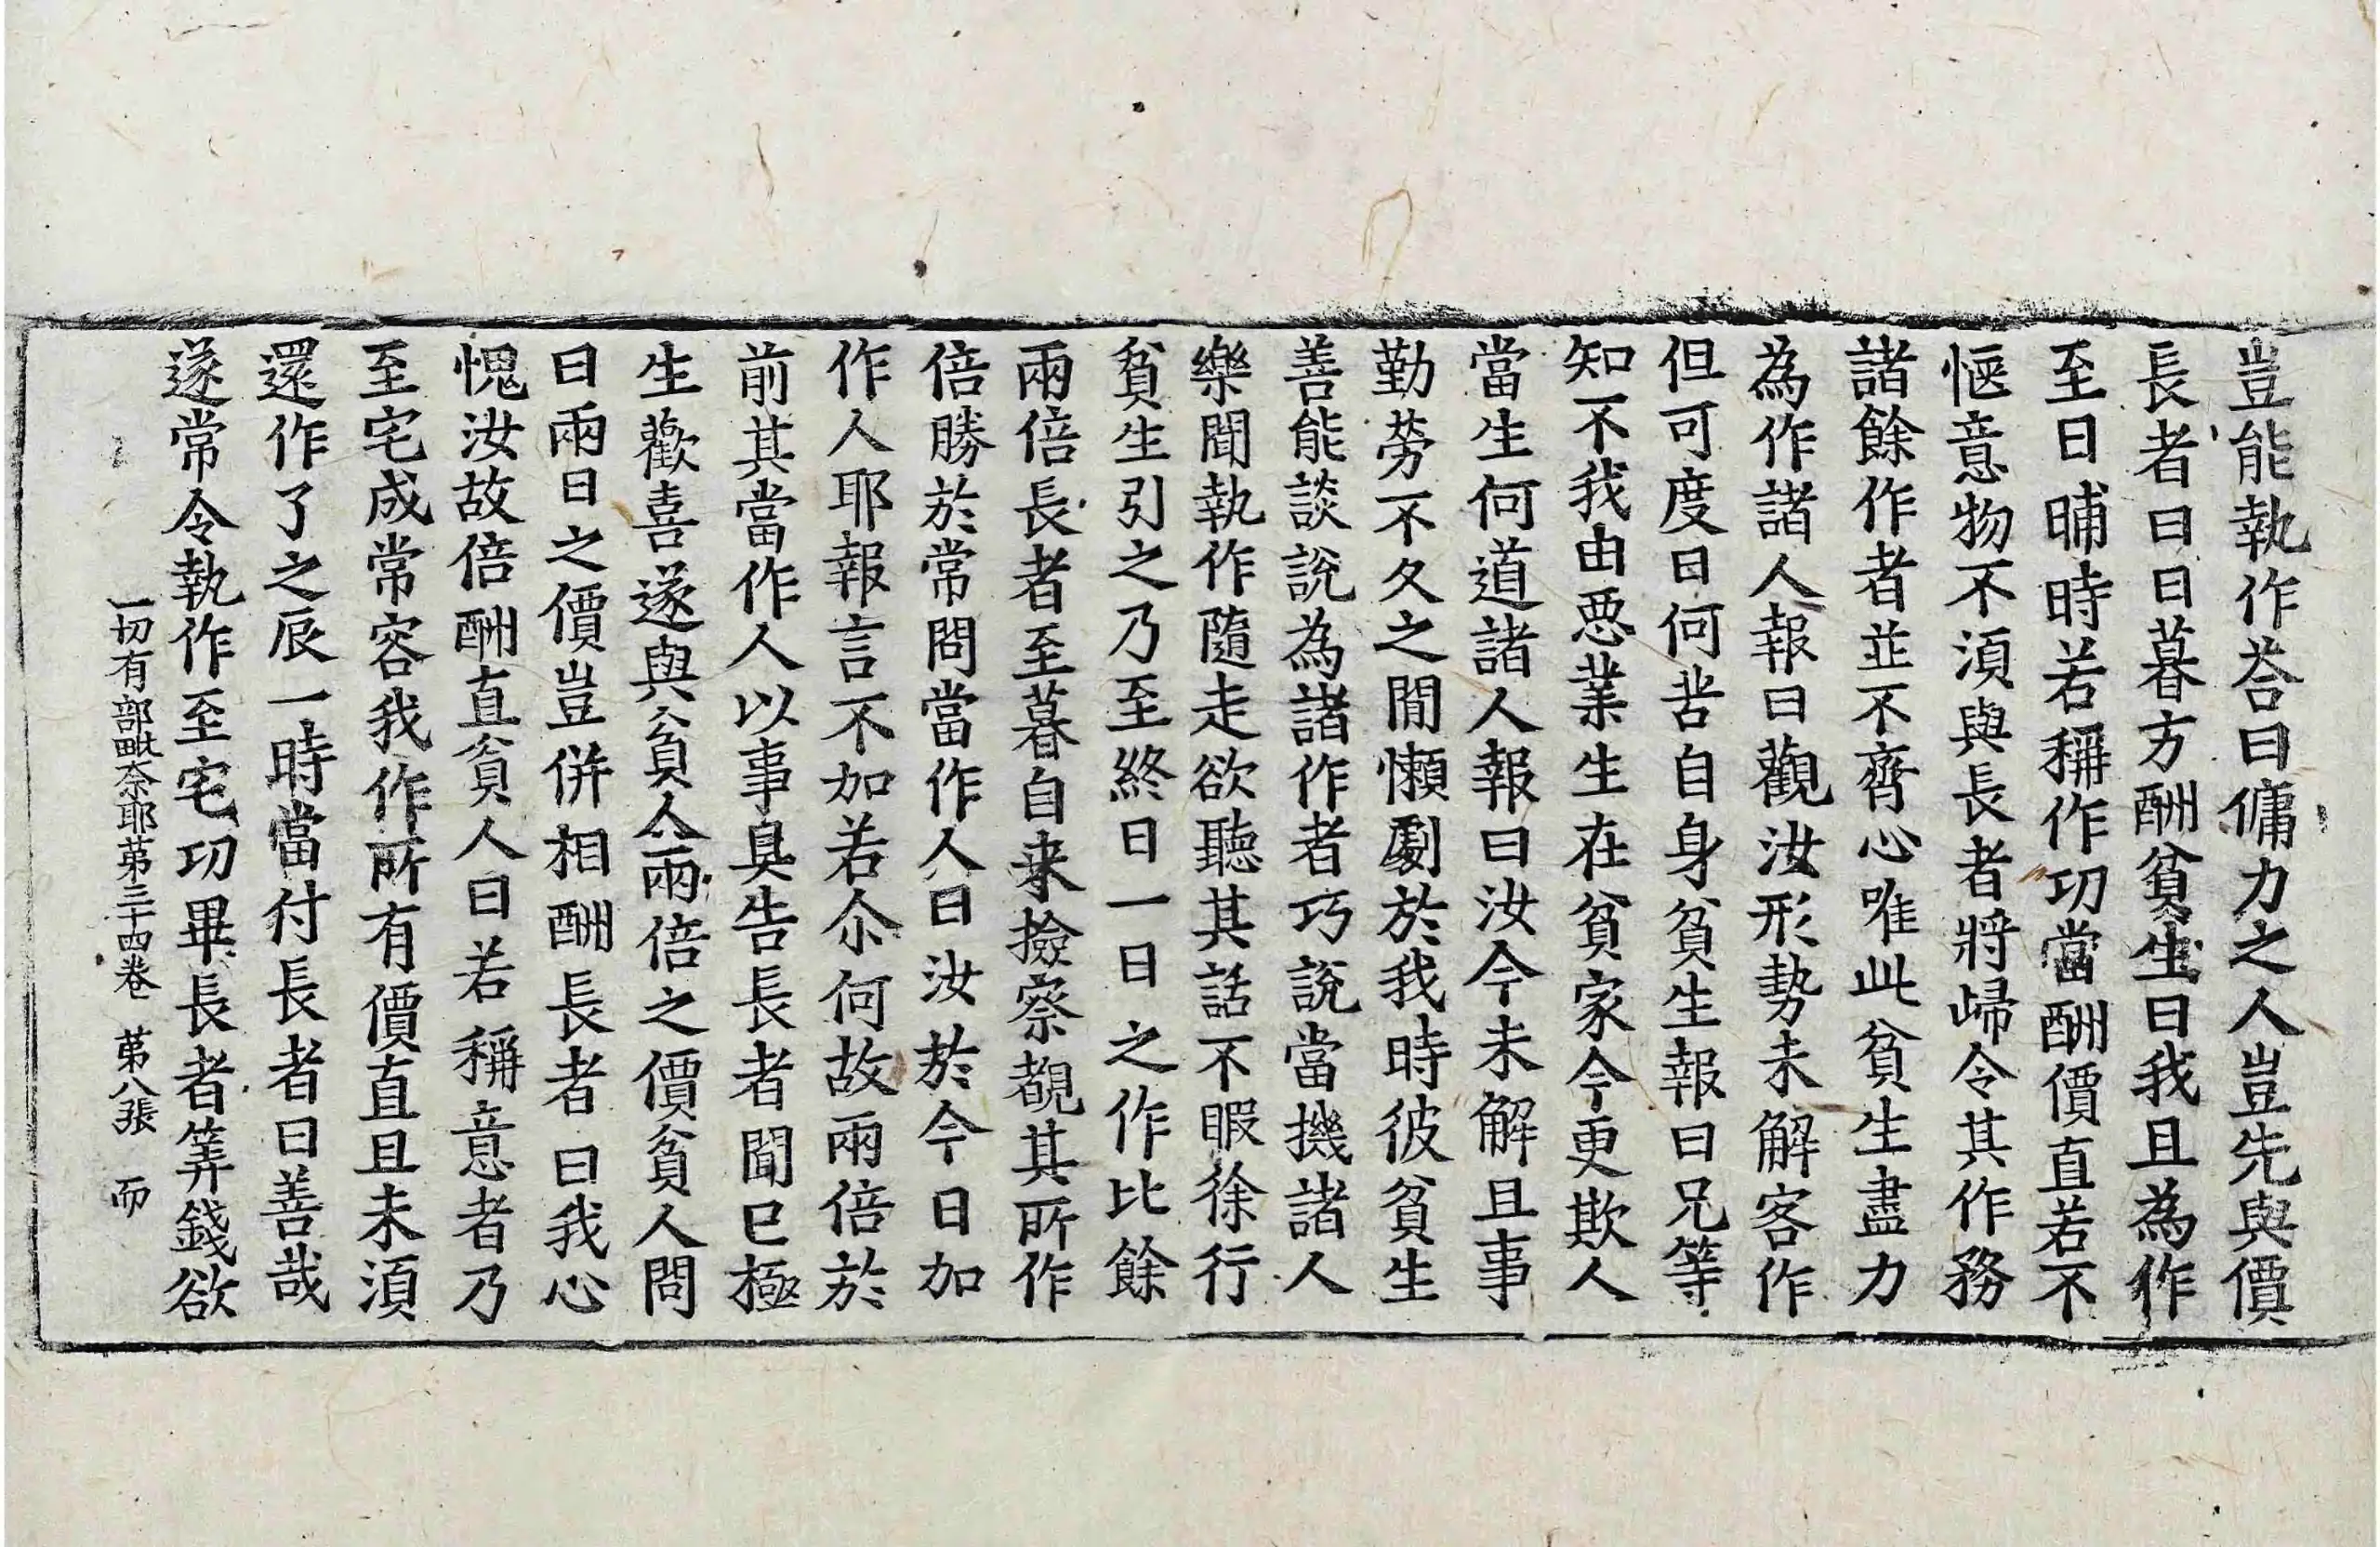 豈能執作荅曰傭力之人豈先與價
長者曰日暮方酬貧生曰我且為作
至日晡時若稱作功當酬價直若不
愜意物不湏與長者將歸令其作務
諸餘作者並不齊心唯此貧生盡力
為作諸人報曰觀汝形勢未解客作
但可度日何苦自身貧生報曰兄等
知不我由惡業生在貧家今更欺人
當生何道諸人報曰汝今未解且事
勤勞不久之間懶劇於我時彼貧生
善能談說為諸作者巧說當機諸人
樂聞執作隨走欲聽其話不暇徐行
貧生引之乃至終日一日之作比餘
兩倍長者至暮自来撿察覩其所作
倍勝於常問當作人曰汝於今日加
作人耶報言不加若尒何故兩倍於
前其當作人以事具告長者聞已極
生歡喜遂與貧人兩倍之價貧人問
曰兩日之價豈併相酬長者曰我心
愧汝故倍酬直貧人曰若稱意者乃
至宅成常容我作所有價直且未湏
還作了之辰一時當付長者曰善哉
遂常令執作至宅功畢長者筭錢欲
一切有部毗奈耶苐三十四卷 苐八張 而